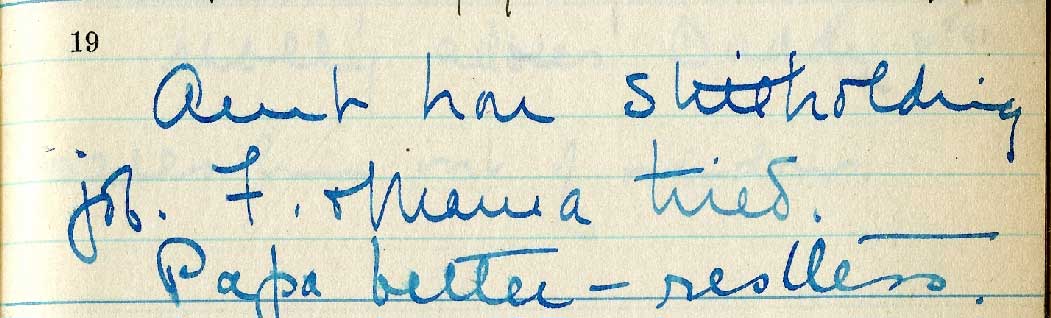 19
Aunt Lou still holding
job. F. & Mama tired.
Papa better – restless.